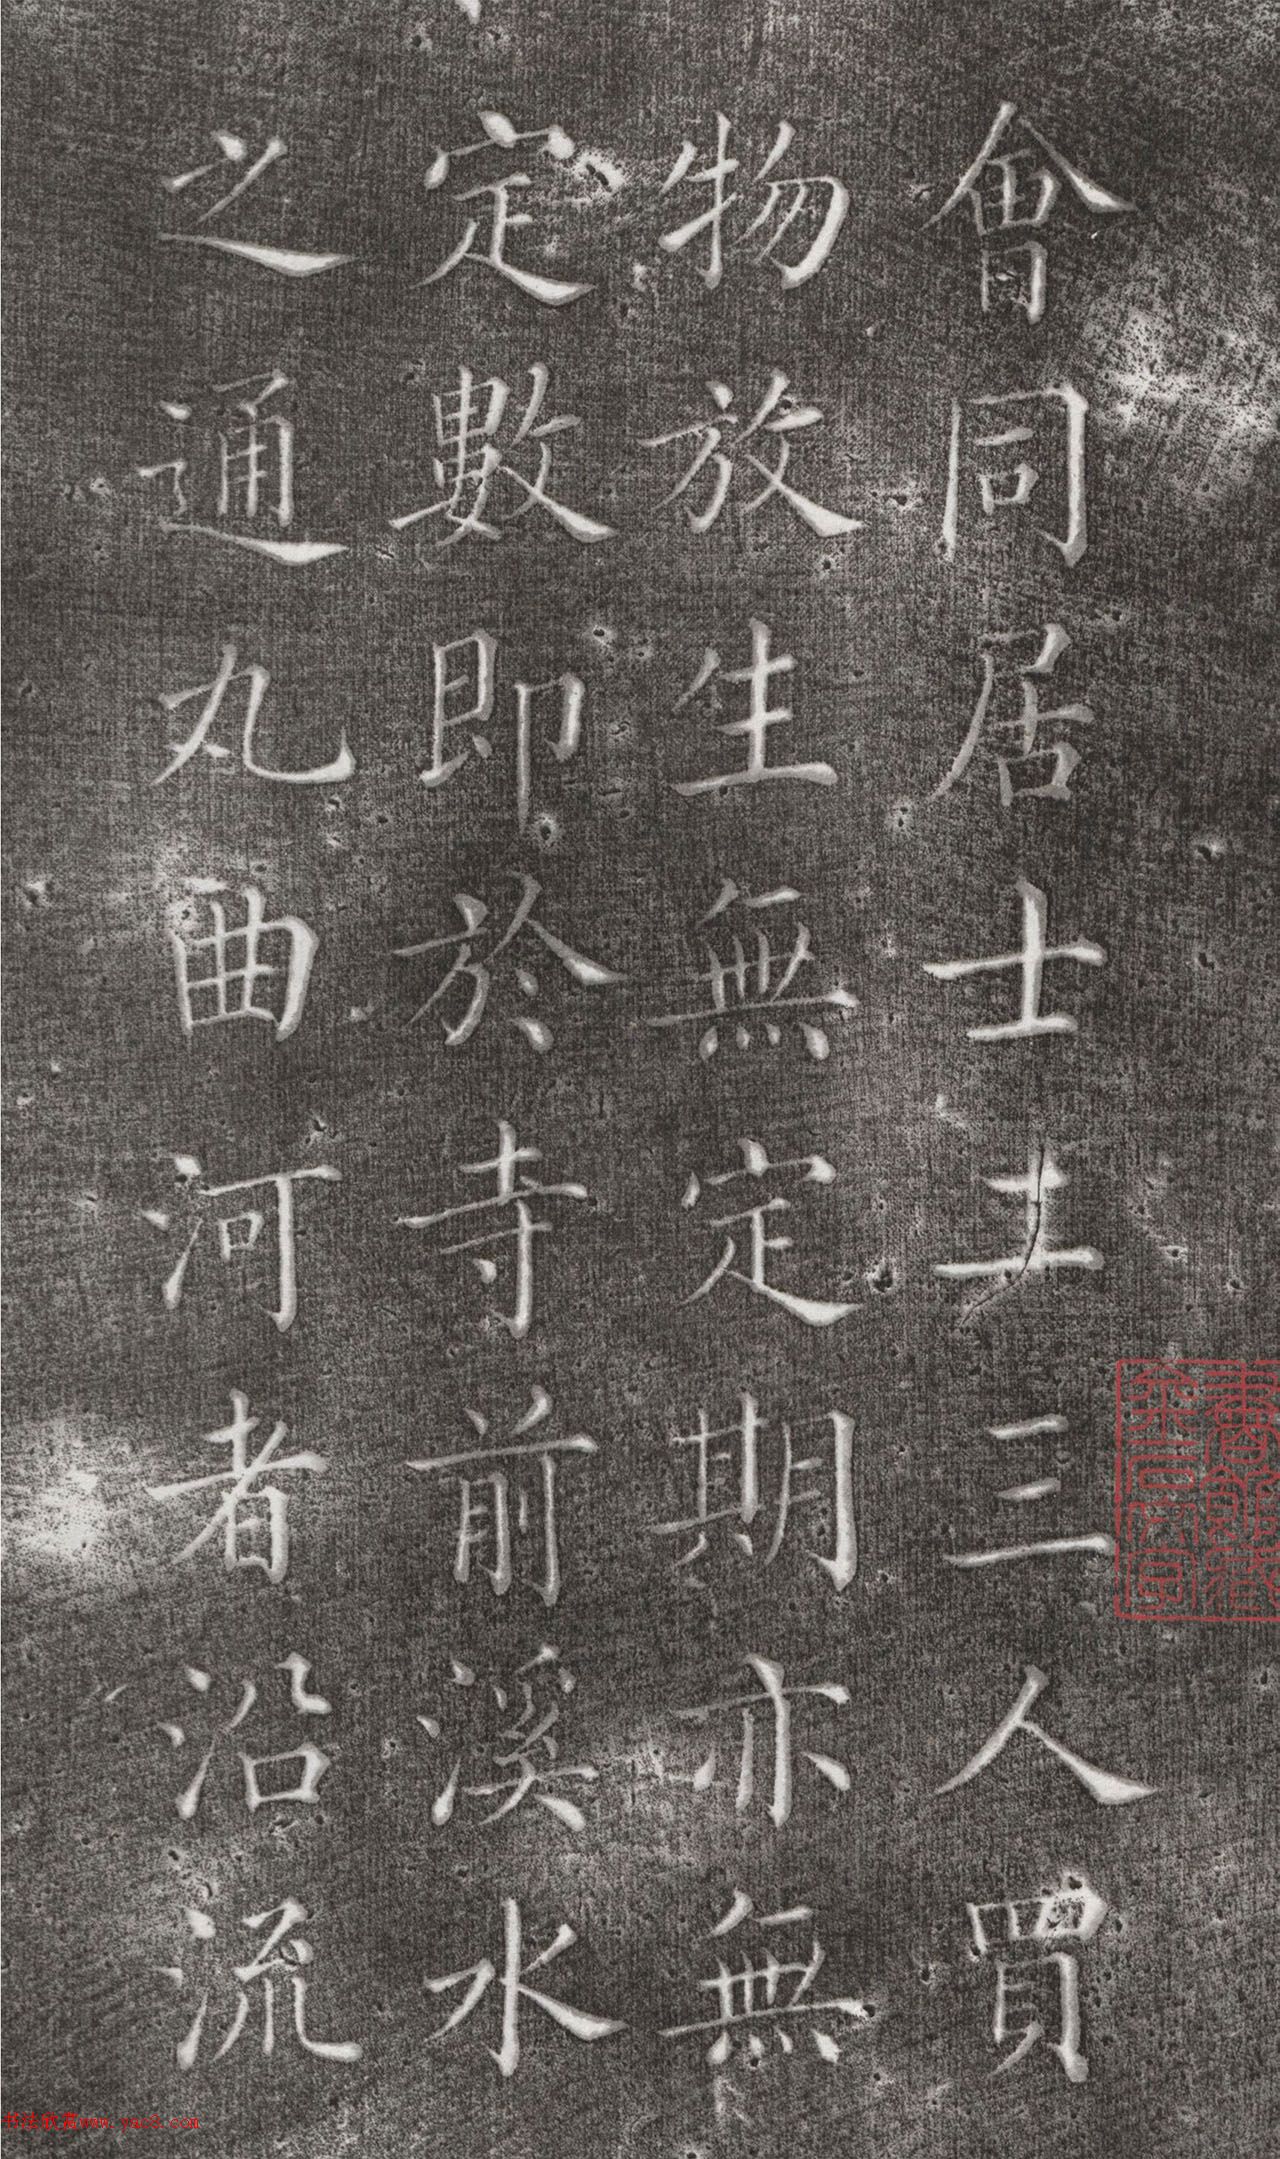 會同居士土三人買
物放生無定期亦無
定數即於寺前溪水
之通丸曲河者沿流
書館藏
金石文字
书法欣赏www.yac8.com